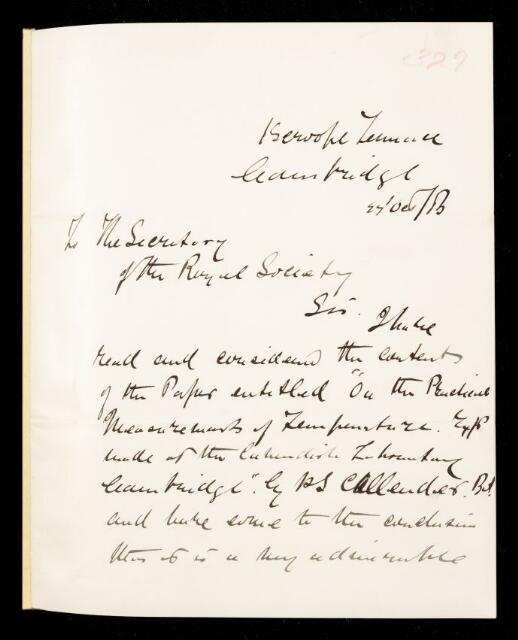 329
Scroope Terrace
Cambridge
Oct/86
To The Secretary
of the Royal Society
Sir. I have
read and considered the contents
of the Paper entitled "On the Practical
Measurements of Temperature. Expts
made at the Cavendish Laboratory
Cambridge". by H L Callendar. BA.
and have come to the conclusion
that it is a very admirable